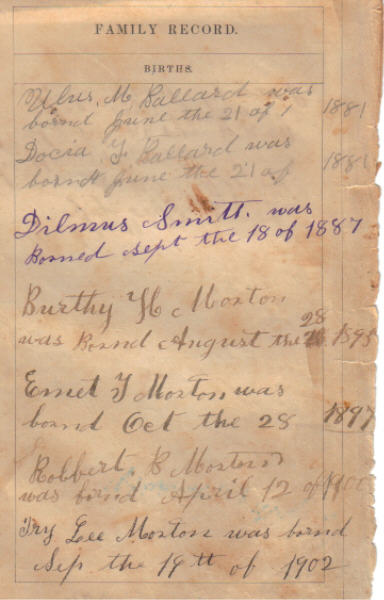 FAMILY RECORD.
BIRTHS.
Ulus, M, Ballard was
bornd June the 21 of 1881
Docia F Ballard was
bornd June the 21 of
Dilmus Smitt. was
Borned Sept the 18 of 1887
Burthy H Morton
was Bornd August the 28 1895
Emet T Morton was
bornd Oct the 28 1897
Robbert, B Morton
was bornd April 12 of
Iry Lee Morton was bornd
Sep the 19tt of 1902